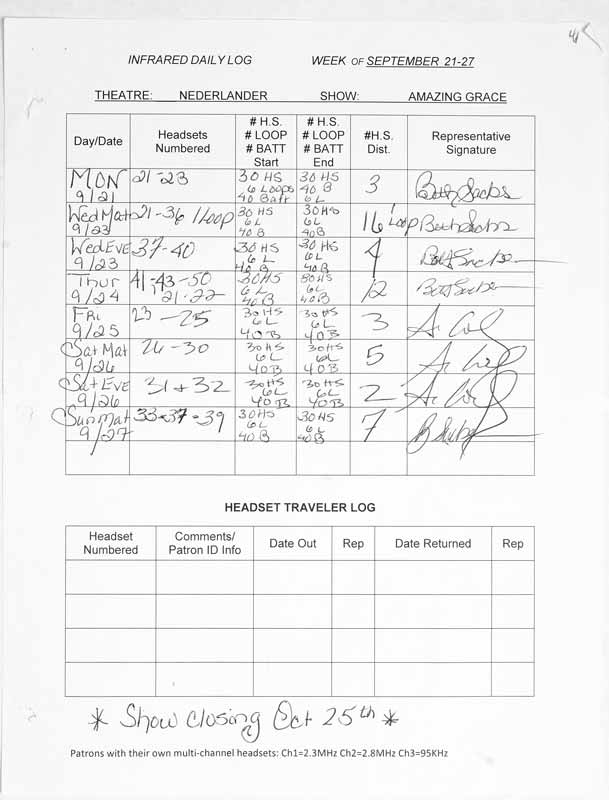 INFRARED DAILY LOG WEEK OF SEPTEMBER 21-27
THEATRE: NEDERLANDER SHOW: AMAZING GRACE
Day/Date Headsets Numbered # H.S. # LOOP # BATT Start # H.S. # LOOP # BATT End #H.S. Dist. Representative Signature
MON 9/21 21-23 30 HS 6 Loops 40 Batt 30 HS 40 B 6L 3
Wed Mat 9/23 21-36 1 Loop 30 HS 6L 40B 30HS 6L 40B 16 1 Loop
Wed EVE 9/23 37-40 30 HS 6L 40B 30 HS 6L 40B 4
Thur 9/24 41-43-50 21-22 30HS 6L 40B 30HS 6L 40B 12
Fri 9/25 23-25 30HS 6L 40B 30HS 6L 40B 3
Sat Mat 9/26 26-30 30HS 6L 40B 30HS 6L 40B 5
Sat EVE 9/26 31+32 30HS 6L 40B 30HS 6L 40B 2
Sun Mat 9/27 33-37-39 30HS 6L 40B 30HS 6L 40B 7
HEADSET TRAVELER LOG
Headset Numbered Comments/ Patron ID Info Date Out Rep Date Returned Rep
* Show closing Oct 25th *
Patrons with their own multi-channel headsets: Ch1=2.3MHz Ch2=2.8MHz Ch3=95KHz